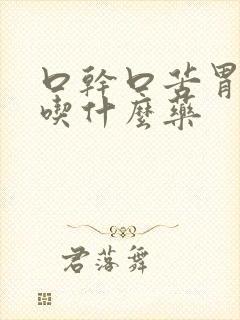 口幹口苦胃
喫什麼藥
君落舞